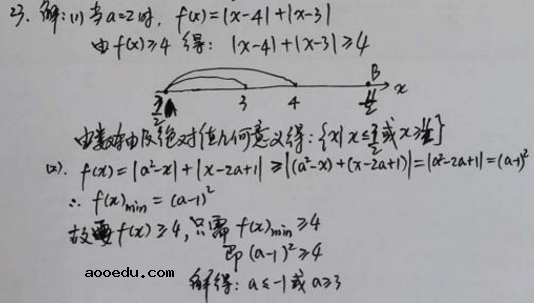 23. 解:(1) 当a=2时, f(x)=|x-4|+|x-3|
由f(x)≥4 得: |x-4|+|x-3|≥4
A B
3/2 3 4 11/2 x
由数轴及绝对值几何意义得:{x|x≤3/2或x≥11/2}
(2). f(x)=|a²-x|+|x-2a+1|≥|(a²-x)+(x-2a+1)|=|a²-2a+1|=(a-1)²
∴ f(x)min=(a-1)²
故要f(x)≥4,只需f(x)min≥4
即(a-1)²≥4
解得: a≤-1或a≥3
aooedu.com